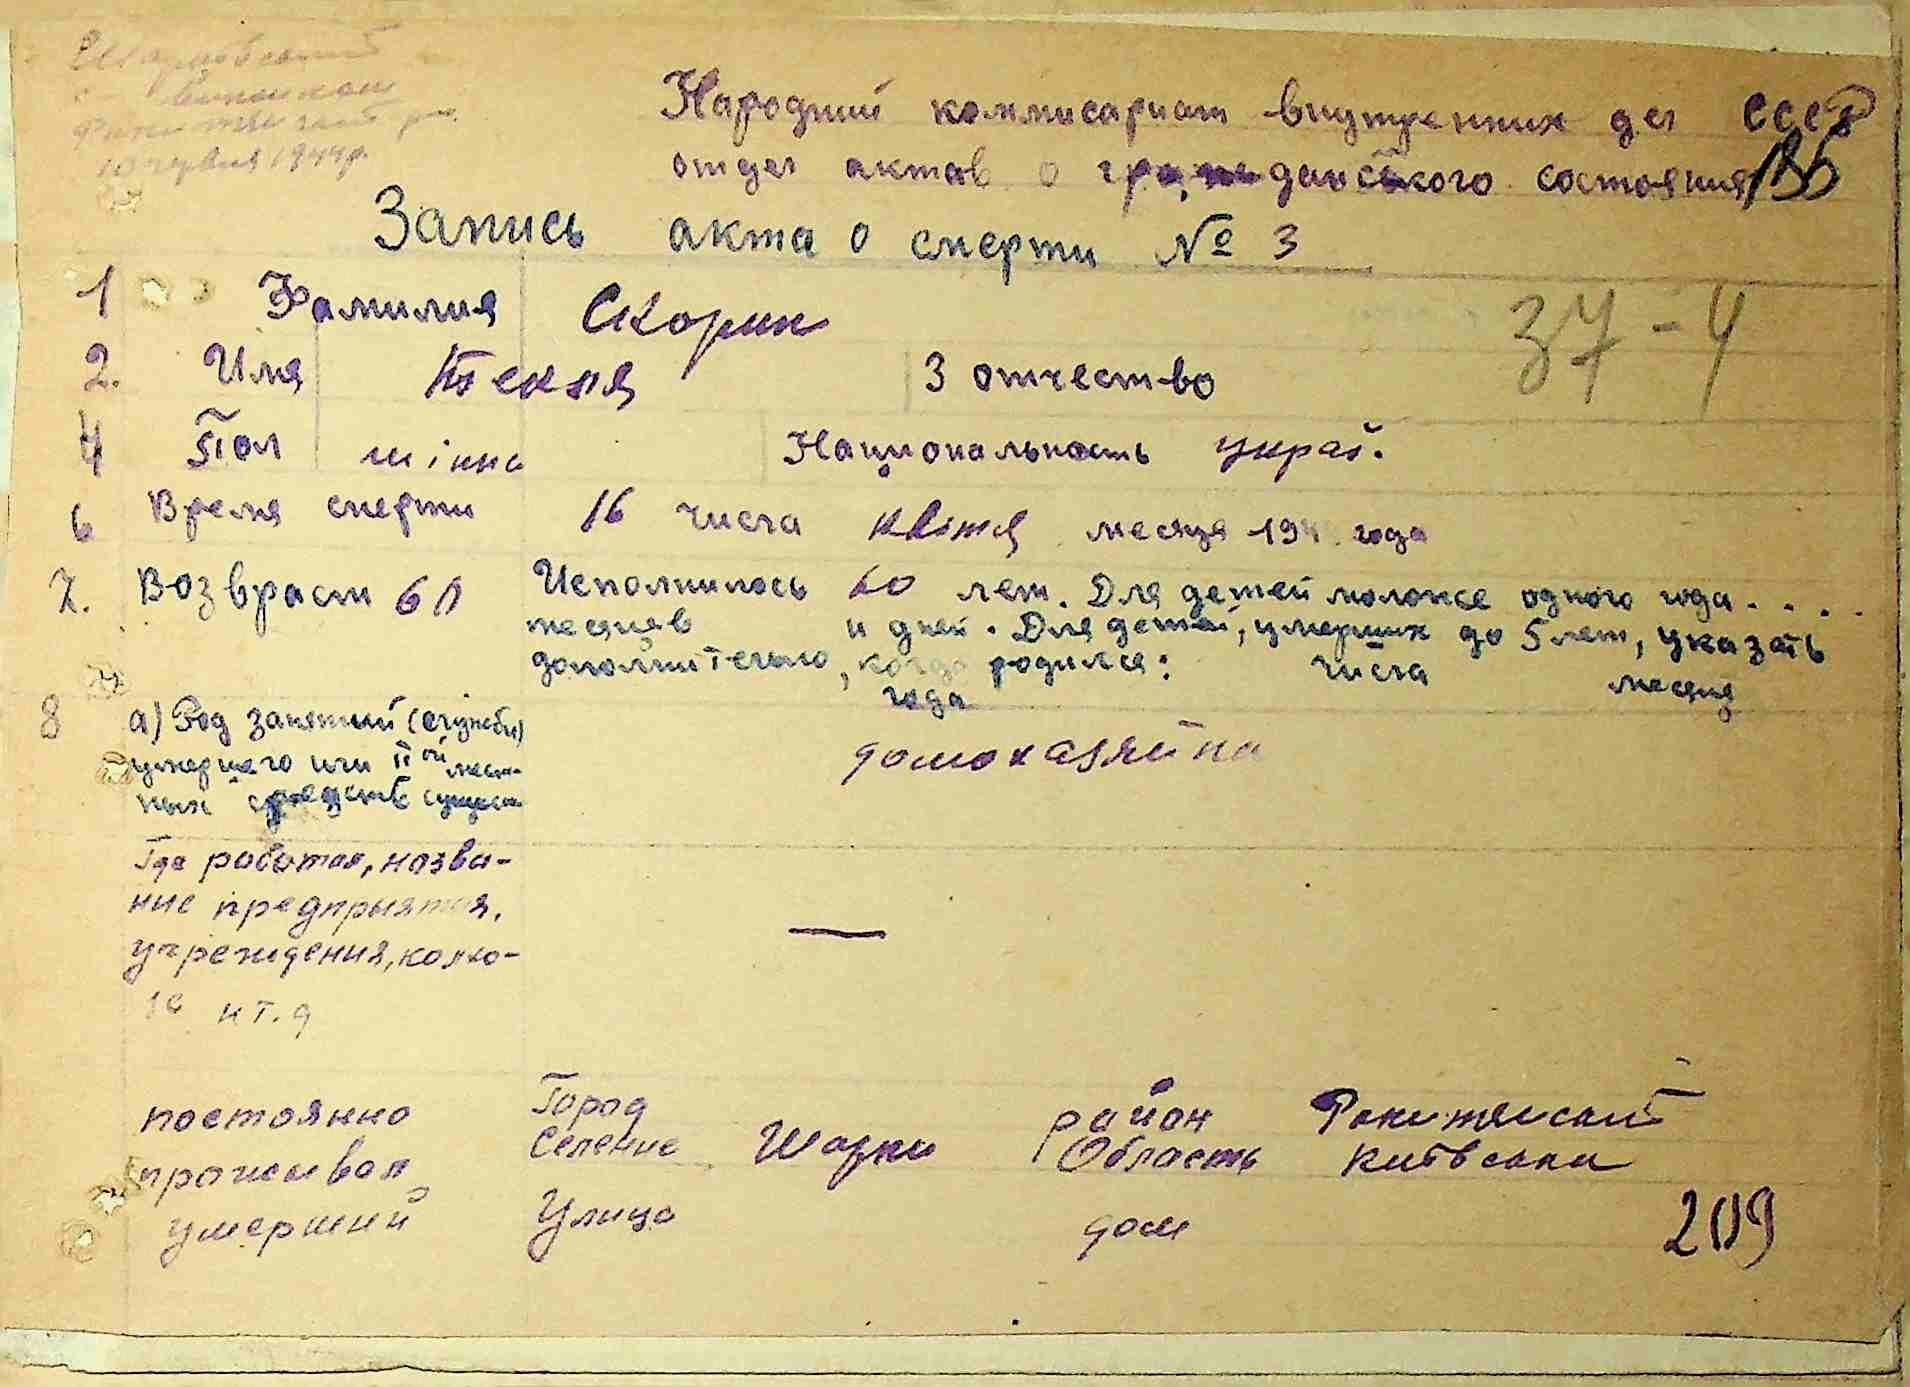 Шарківський
виконком
Ракитянський р.
10 червня 1944р.
Народний коммисариат внутренних дел СССР
отдел актов о гражданского состояния 186
Запись акта о смерти № 3
1 Фамилия Скорик
37-4
2. Имя Текля 3 отчество
4 Пол жінка Национальность украї.
6 Время смерти 16 числа квітня месяца 194 года
7. Возвраст 60 Исполнилось 60 лет. Для детей моложе одного года . . . .
месяцев и дней. Для детей, умерших до 5 лет, указать
дополнительно, когда родился: числа месяца
года
8 а) Род занятий (службы)
умершего или
ных средств сущест
домохазяйка
Где работал, назва-
ние предприятия,
учреждения, колхо-
за и т.д
—
постоянно
проживал
умерший
Город
Селение Шарки район Ракитянський
Область Київська
Улица дом
209